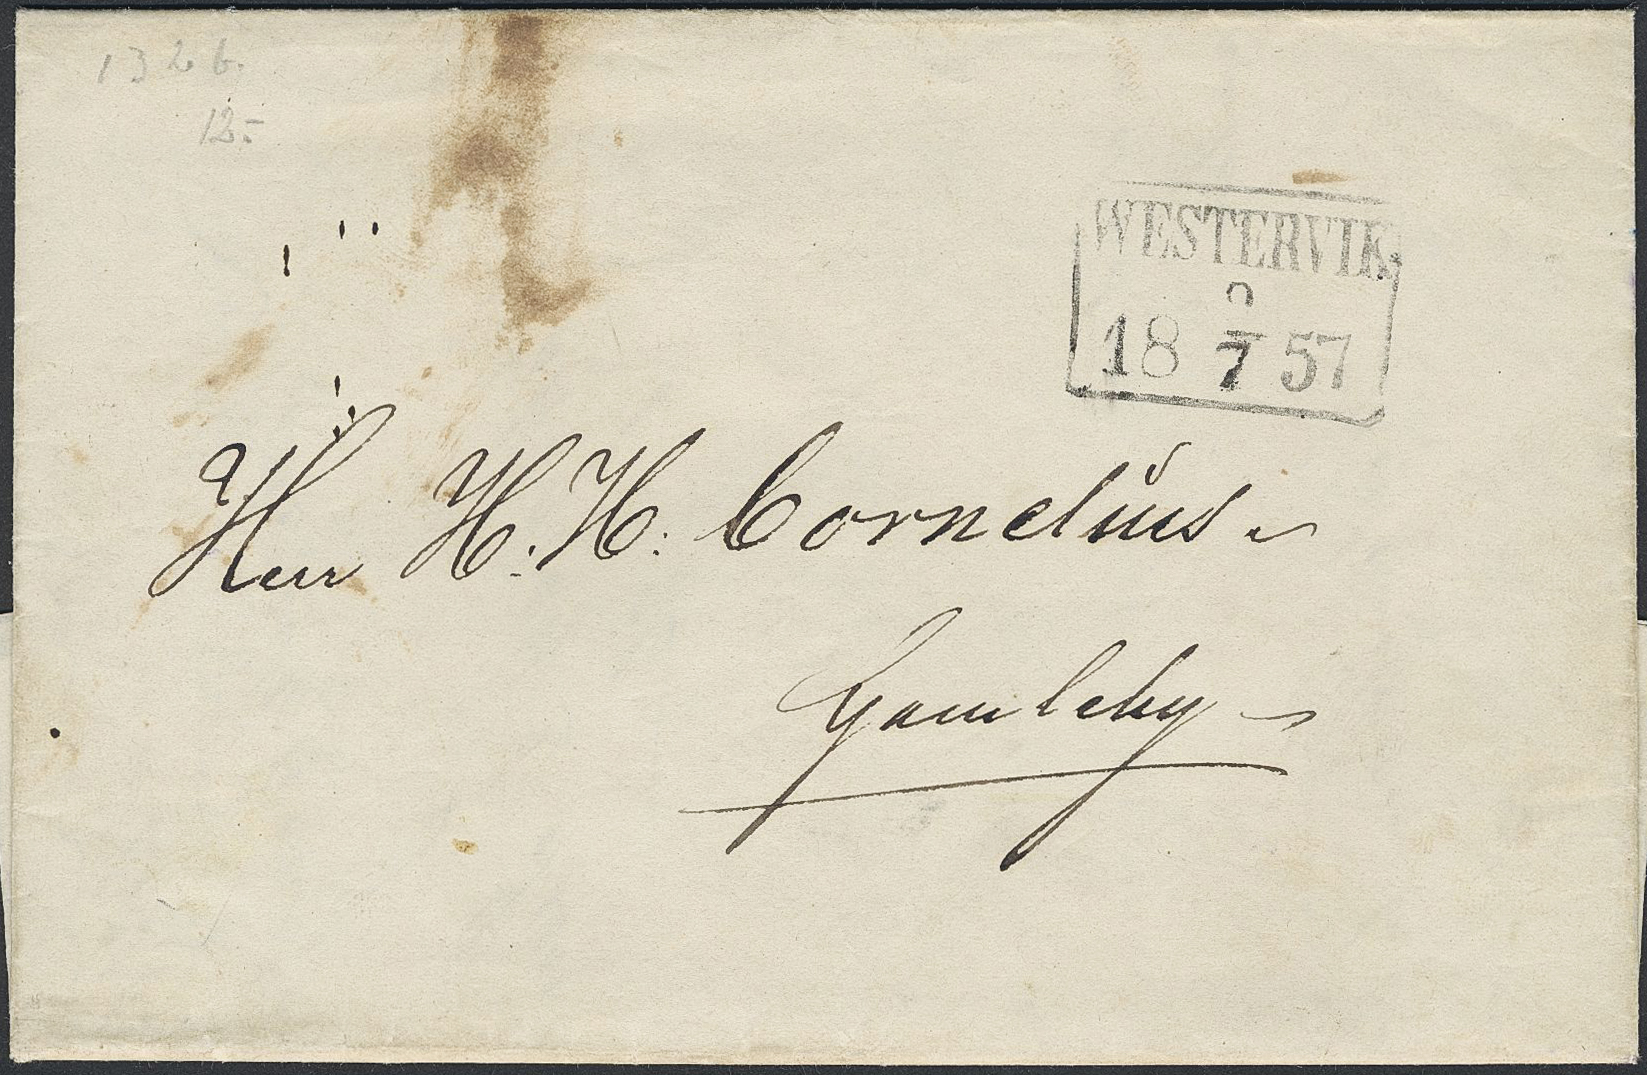 1326.
12:-
WESTERVIK
18 7 57
Herr H. H: Cornelius
Gamleby